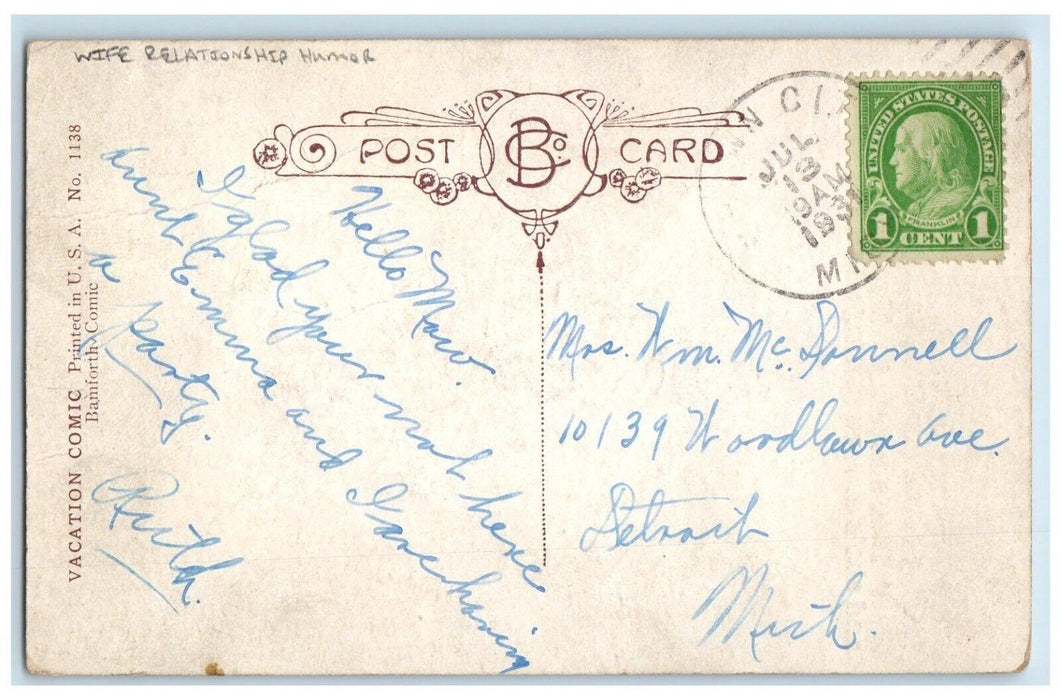 WIFE RELATIONSHIP HUMOR
POST CARD
BCo
VACATION COMIC Printed in U. S. A. No. 1138
Bamforth Comic
Hello Maw.
I glad your not here
Aunt Emma and I are having
a party.
Ruth.
N CI
JUL
13
AM
193
MI
UNITED STATES POSTAGE
FRANKLIN
1 CENT 1
Mrs. Wm. Mc. Donnell
10139 Woodlawn Ave.
Detroit
Mich.